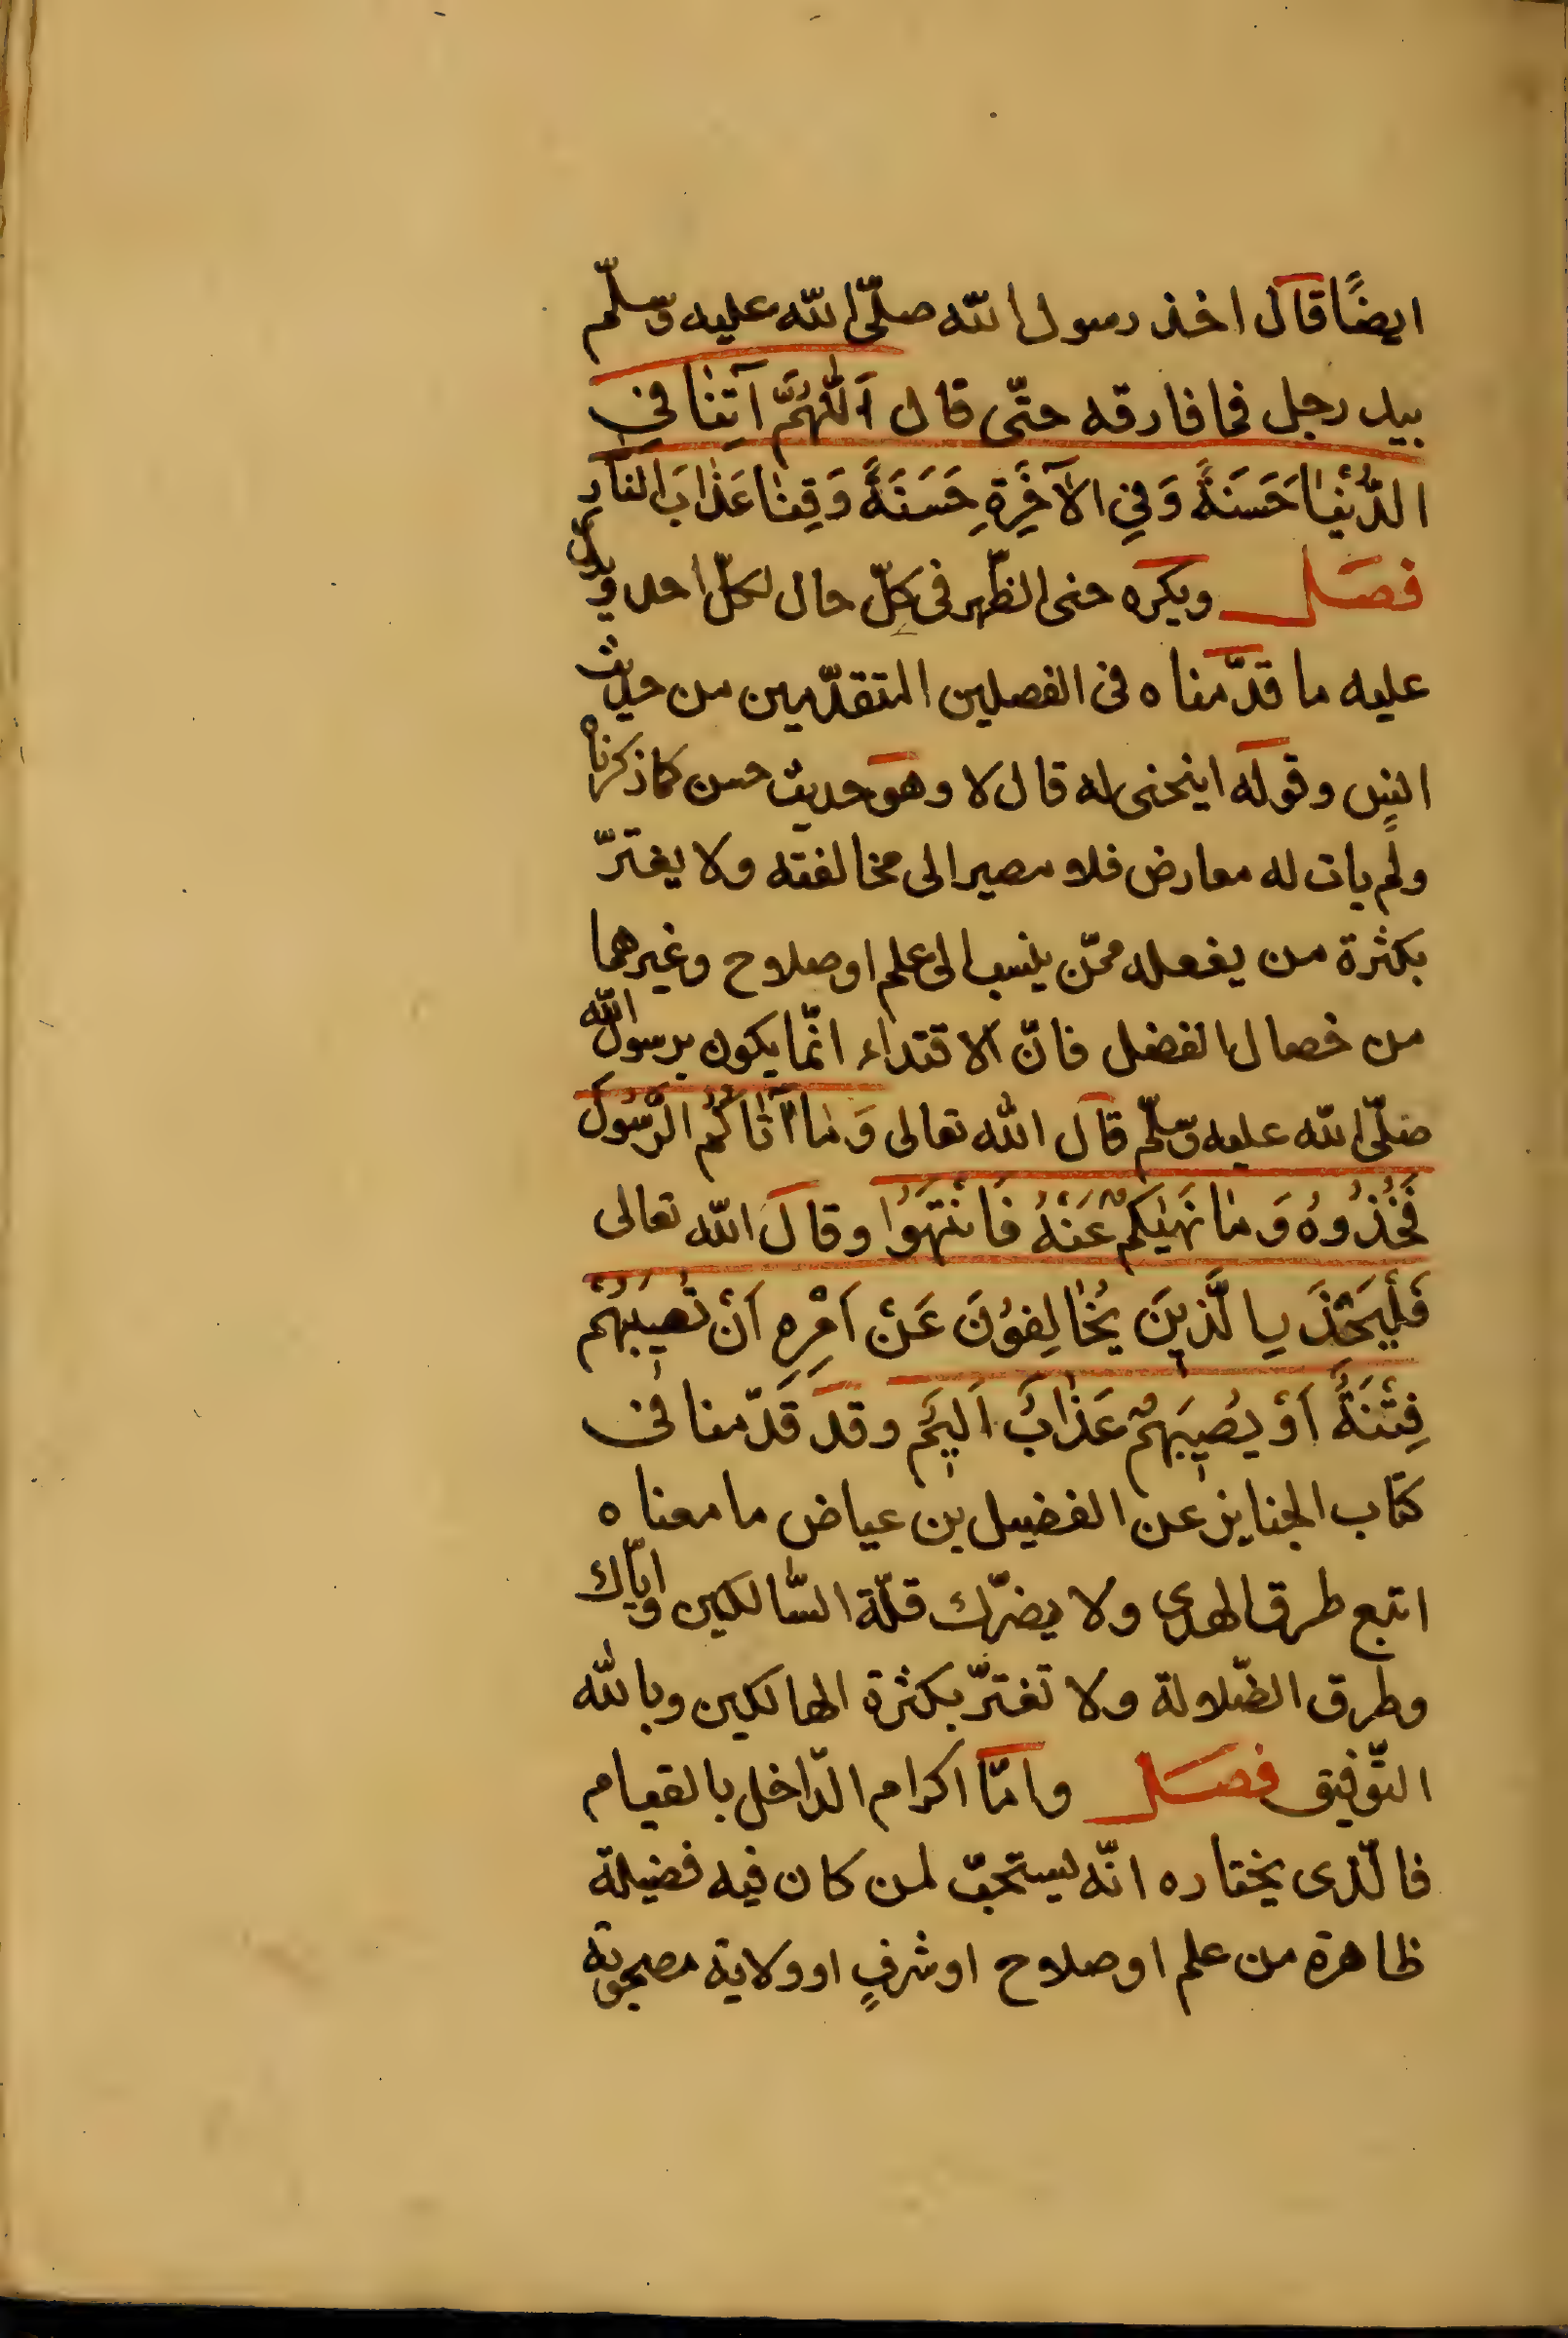 ايضًا قال اخذ رسول الله صلّى الله عليه وسلّم
بيد رجل فما فارقه حتّى قال اَللّٰهُمَّ آتِنٰا فِي
الدُّنْيٰا حَسَنَةً وَفِي الآخِرَةِ حَسَنَةً وَقِنٰا عَذٰابَ النّار
فصل ويكره حنى الظّهر فى كلّ حال لكلّ احد ويدلّ
عليه ما قدّمناه فى الفصلين المتقدّمين من حديث
انس وقوله اينحنى له قال لا وهو حديث حسن كما ذكرناه
ولم يات له معارض فلا مصير الى مخالفته ولا يغترّ
بكثرة من يفعله ممّن ينسب الى علم او صلاح وغيرهما
من خصال الفضل فانّ الاقتداء انّما يكون برسول الله
صلّى الله عليه وسلّم قال الله تعالى وَمٰا آتٰاكُمُ الرَّسُولُ
فَخُذُوهُ وَمٰا نَهٰيكُمْ عَنْهُ فَانْتَهُوا وقال الله تعالى
فَلْيَحْذَرِ الَّذِينَ يُخٰالِفُونَ عَنْ اَمْرِهِ اَنْ تُصِيبَهُمْ
فِتْنَةٌ اَوْ يُصِيبَهُمْ عَذٰابٌ اَلِيمٌ وقد قدّمنا فى
كتاب الجنايز عن الفضيل بن عياض ما معناه
اتبع طرق الهدى ولا يضرّك قلّة السّالكين وايّاك
وطرق الضّلالة ولا تغترّ بكثرة الهالكين وبالله
التّوفيق فصل وامّا اكرام الدّاخل بالقيام
فالّذى يختاره انّه يستحبّ لمن كان فيه فضيلة
ظاهرة من علم او صلاح او شرفٍ او ولاية مصحوبة